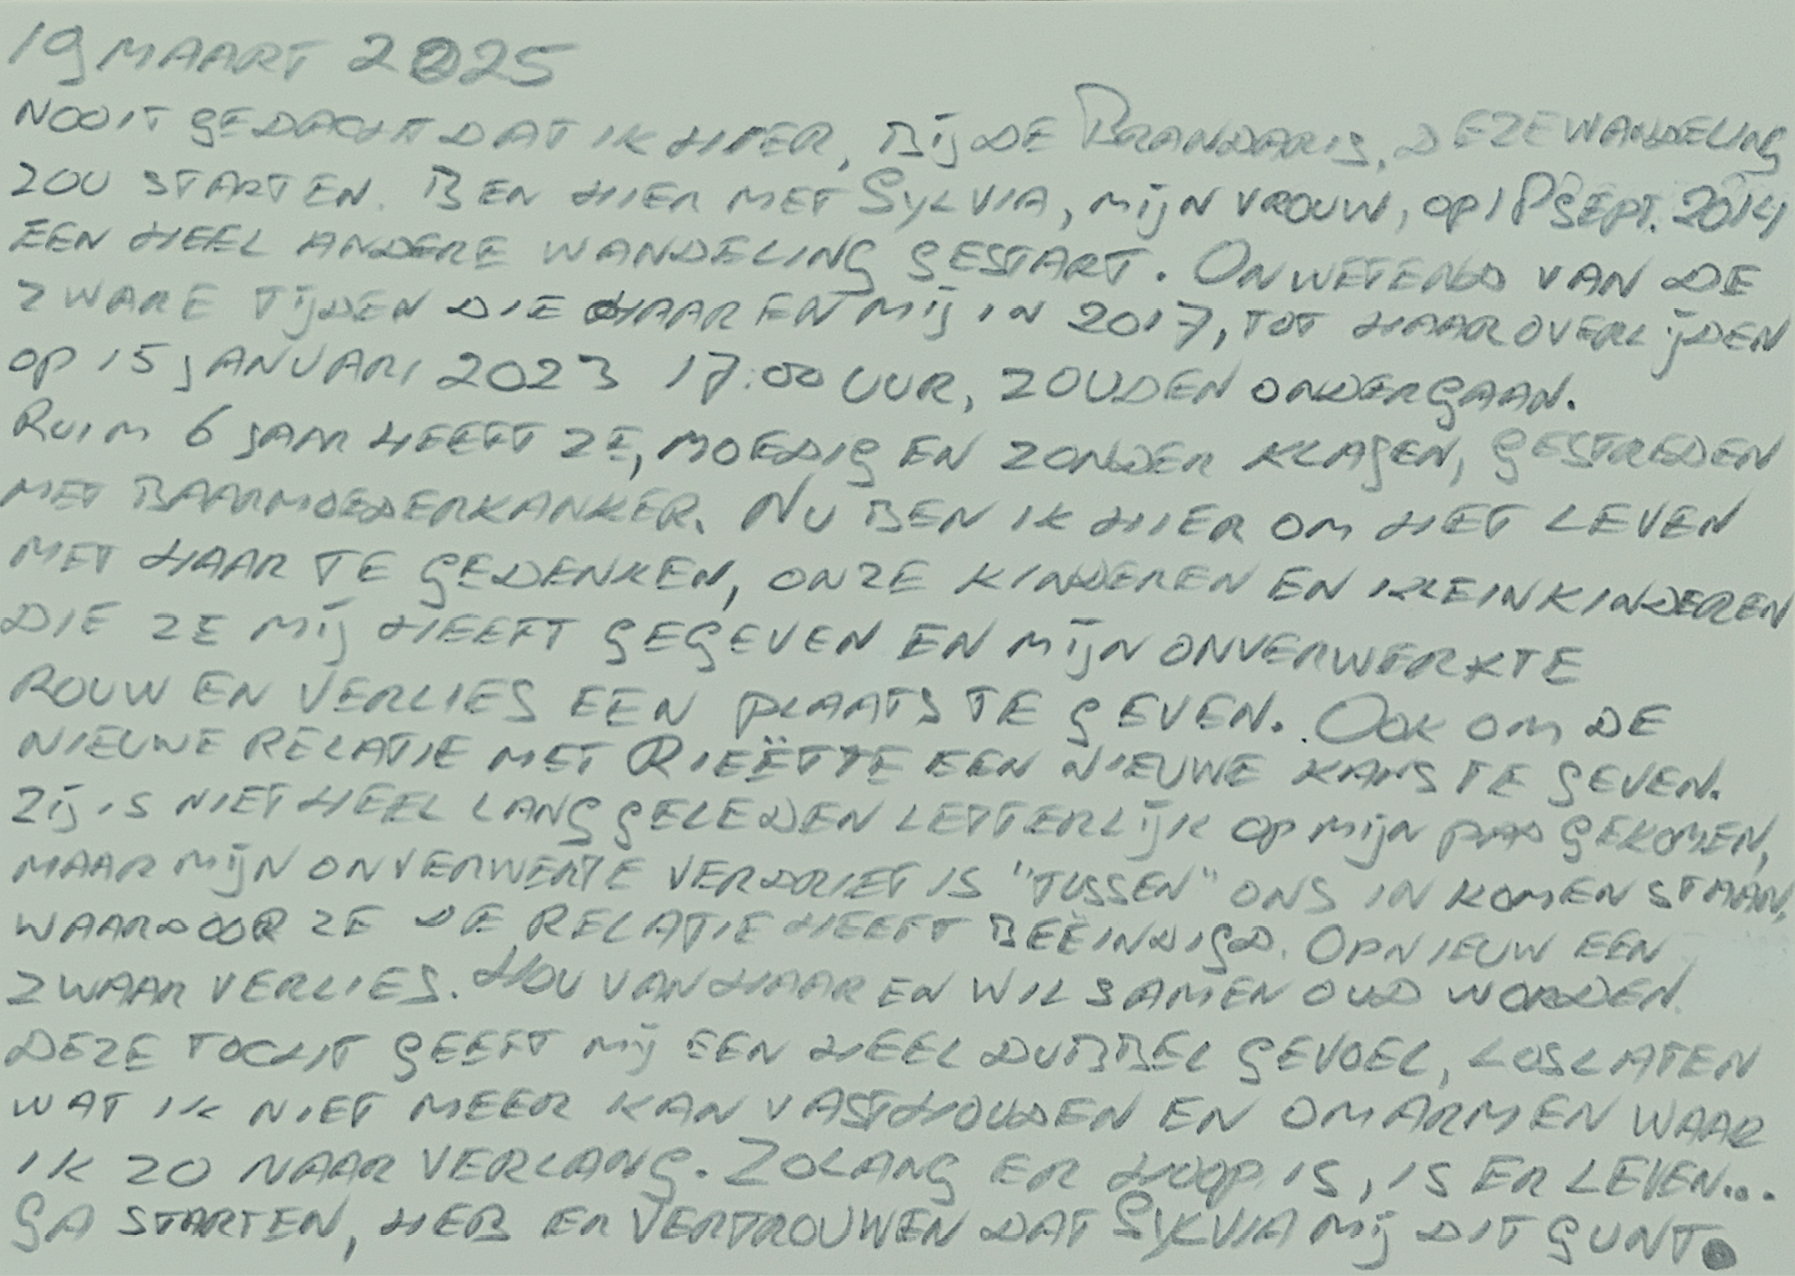 19 MAART 2025
NOOIT GEDACHT DAT IK HIER, BIJ DE BRANDARIS, DEZE WANDELING
ZOU STARTEN. BEN HIER MET SYLVIA, MIJN VROUW, OP 18 SEPT. 2014
EEN HEEL ANDERE WANDELING GESTART. ONWETEND VAN DE
ZWARE TIJDEN DIE HAAR EN MIJ IN 2017, TOT HAAR OVERLIJDEN
OP 15 JANUARI 2023 17:00 UUR, ZOUDEN ONDERGAAN.
RUIM 6 JAAR HEEFT ZE, MOEDIG EN ZONDER KLAGEN, GESTREDEN
MET BAARMOEDERKANKER. NU BEN IK HIER OM HET LEVEN
MET HAAR TE GEDENKEN, ONZE KINDEREN EN KLEINKINDEREN
DIE ZE MIJ HEEFT GEGEVEN EN MIJN ONVERWERKTE
ROUW EN VERLIES EEN PLAATS TE GEVEN. OOK OM DE
NIEUWE RELATIE MET RIEËTTE EEN NIEUWE KANS TE GEVEN.
ZIJ IS NIET HEEL LANG GELEDEN LETTERLIJK OP MIJN PAD GEKOMEN,
MAAR MIJN ONVERWERTE VERDRIET IS "TUSSEN" ONS IN KOMEN STAAN,
WAARDOOR ZE DE RELATIE HEEFT BEËINDIGD. OPNIEUW EEN
ZWAAR VERLIES. HOU VAN HAAR EN WIL SAMEN OUD WORDEN.
DEZE TOCHT GEEFT MIJ EEN HEEL DUBBEL GEVOEL, LOSLATEN
WAT IK NIET MEER KAN VASTHOUDEN EN OMARMEN WAAR
IK ZO NAAR VERLANG. ZOLANG ER HOOP IS, IS ER LEVEN...
GA STARTEN, HEB ER VERTROUWEN DAT SYLVIA MIJ DIT GUNT.